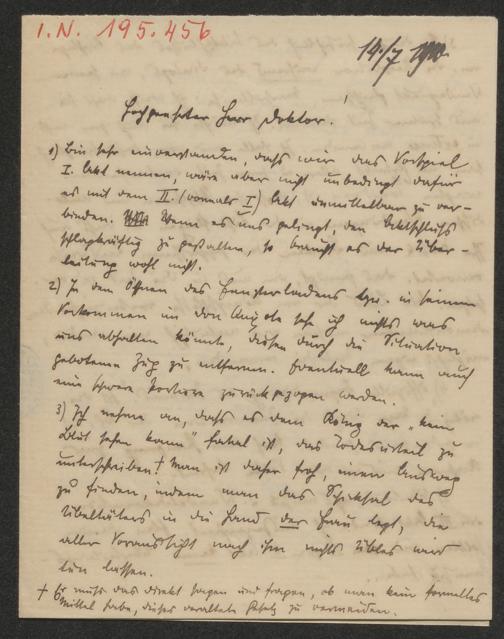 I.N. 195.456
14./7 1910.
Hochgeehrter Herr Doktor!
1) Bin sehr einverstanden, dass wir das Vorspiel
I. Akt nennen, wäre aber nicht unbedingt dafür
es mit dem II. (vormals I) Akt unmittelbar zu ver-
binden. Wenn es uns gelingt, den Aktschluss
schlagkräftig zu gestalten, so braucht es der Über-
leitung wohl nicht.
2) In dem Öffnen des Fensterladens bzw. in seinem
Vorkommen in don sehe ich nichts was
uns abhalten könnte, diesen durch die Situation
gebotenen Zug zu entfernen. Eventuell kann auch
eine schwere Portiere zurückgezogen werden.
3) Ich nehme an, dass es dem König der „kein
Blut sehen kann" fatal ist, das Todesurteil zu
unterschreiben.† Man ist daher froh, einen Ausweg
zu finden, indem man das Schicksal des
Übeltäters in die Hand der Frau legt, die
aller Voraussicht nach ihm nichts Übles wird
tun lassen.
† Er muss das direkt sagen und fragen, ob man kein formelles
Mittel habe, dieses veraltete Gesetz zu vermeiden.